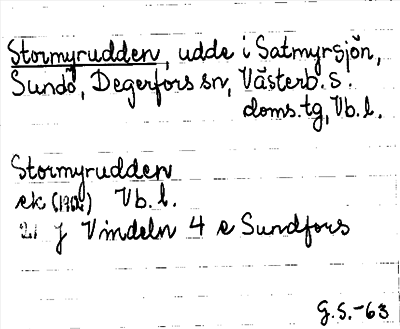 Stormyrudden, udde i Satmyrsjön,
Sundö, Degerfors sn, Västerb. s.
doms.tg, Vb. l.
Stormyrudden
ek (1962) Vb. l.
21 J Vindeln 4 e Sundfors
G.S.-63